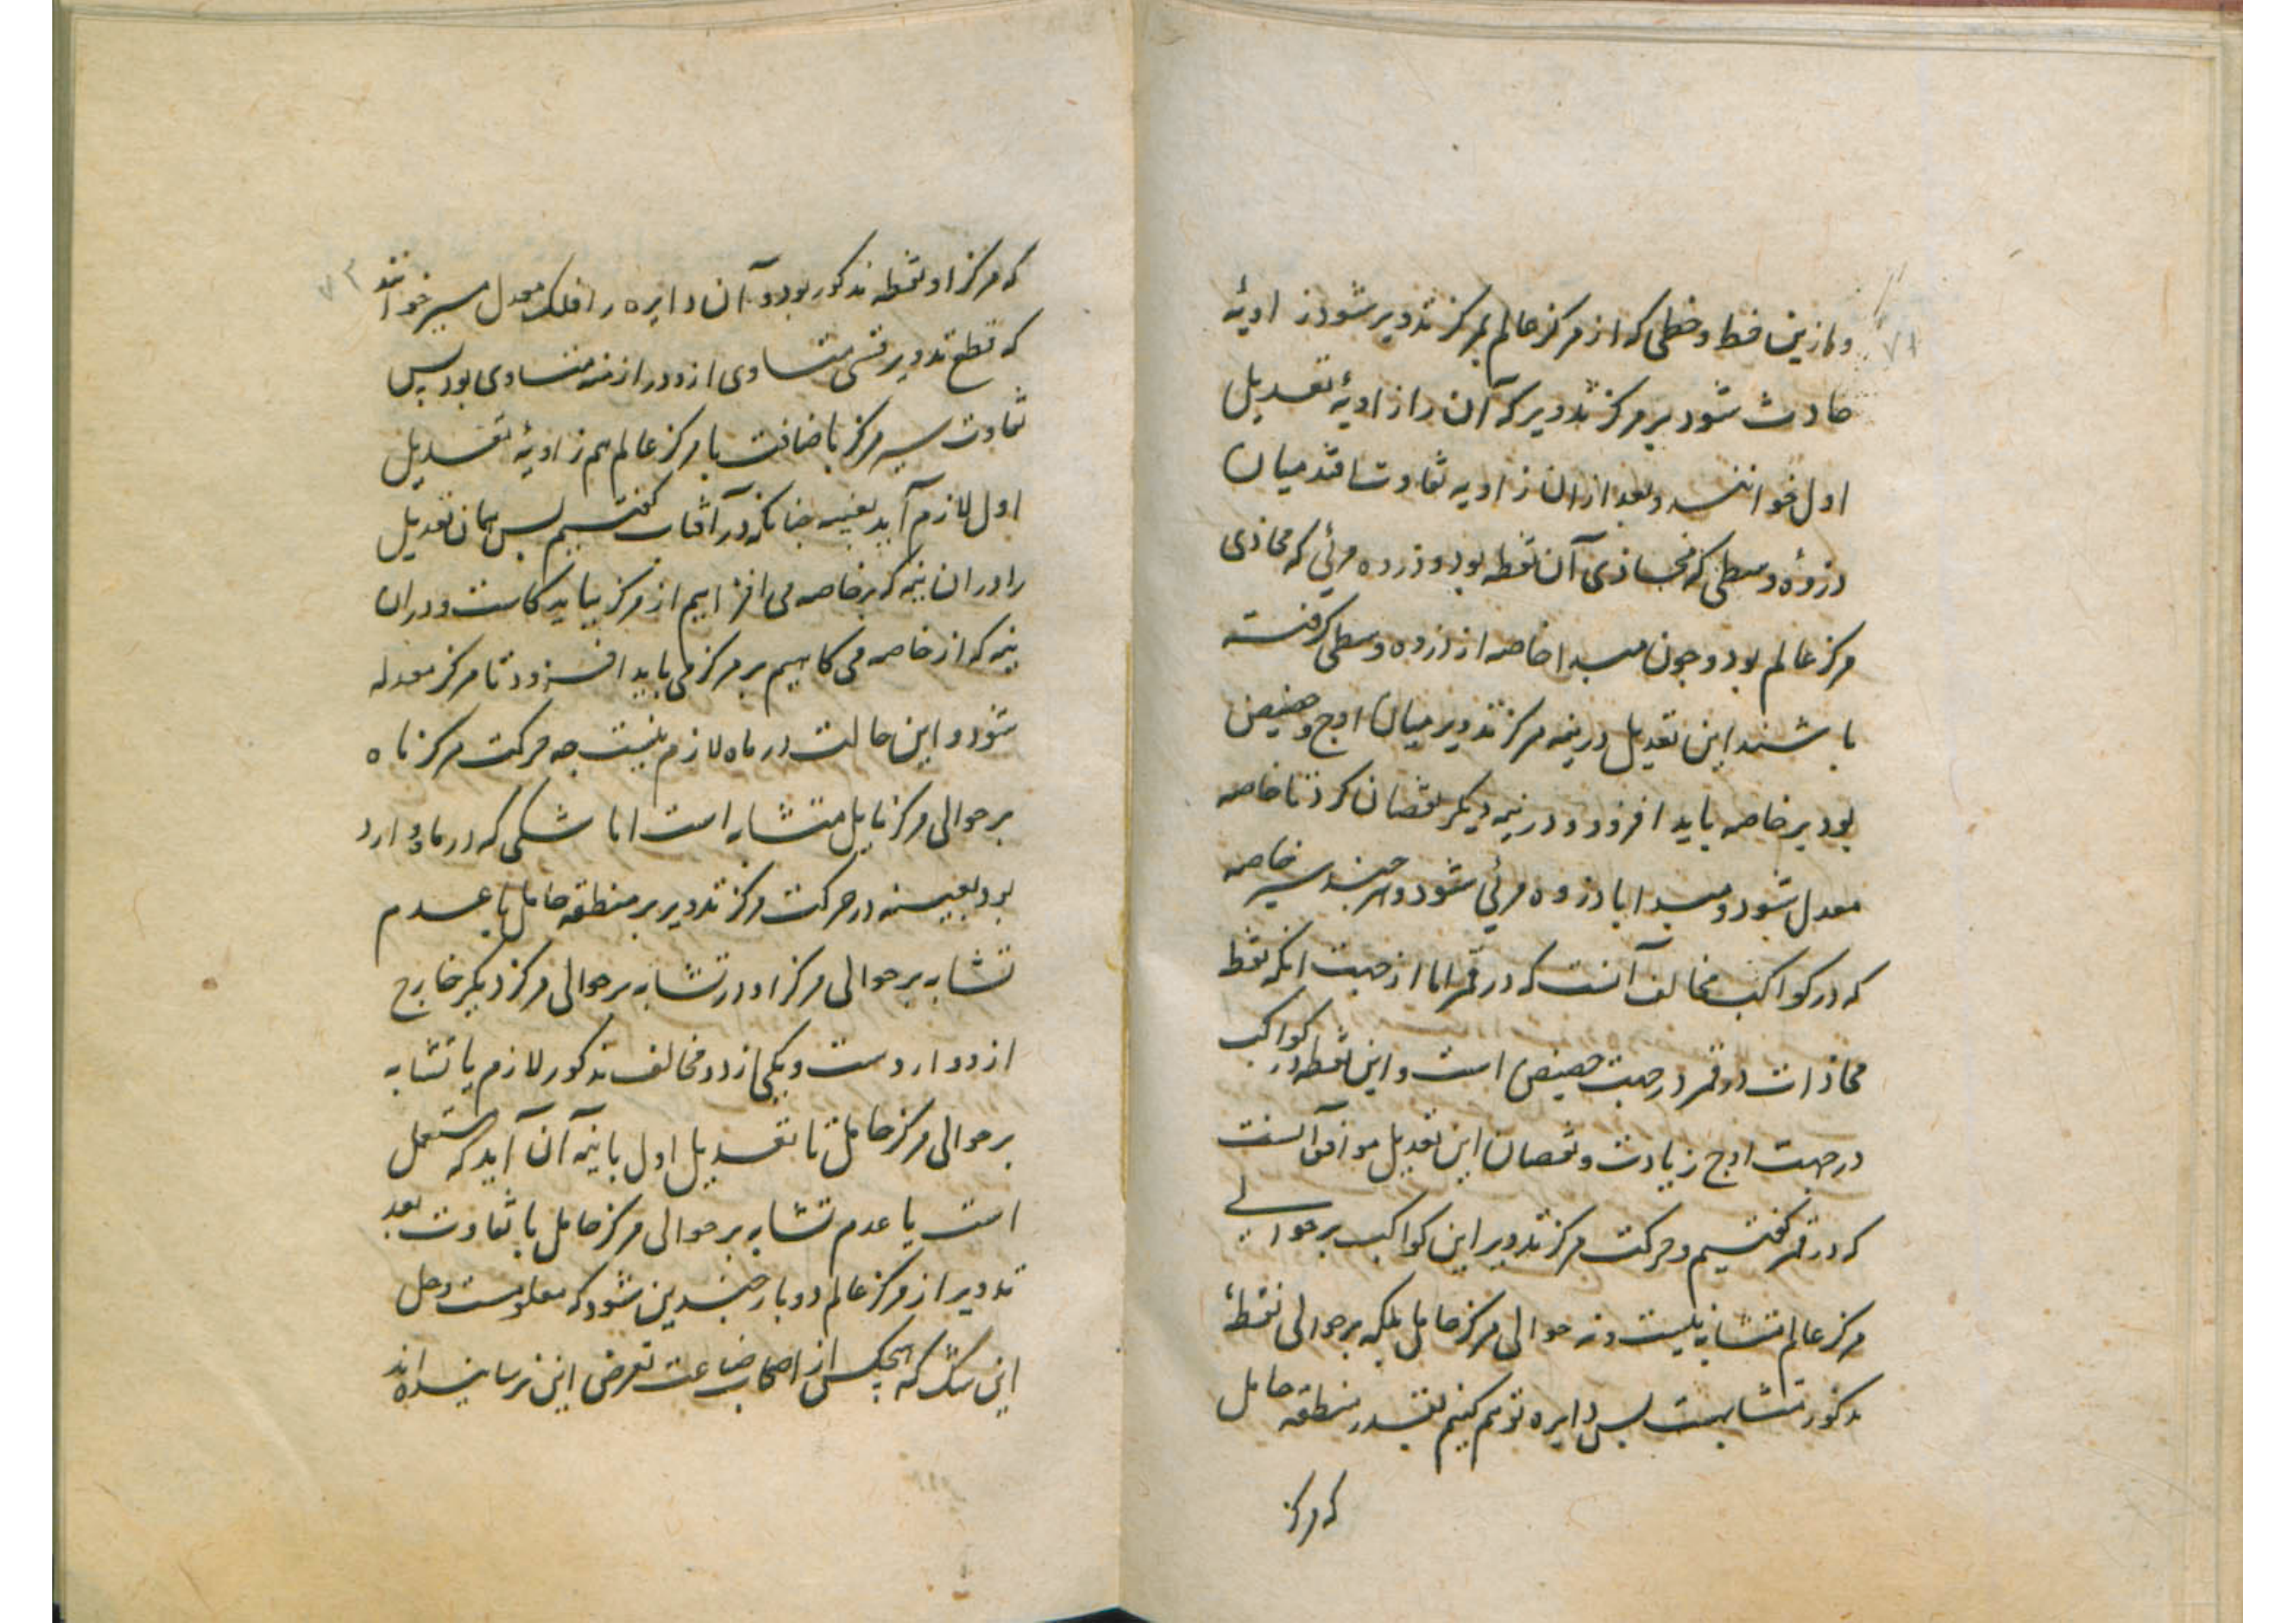 و ازین خط و خطی که از مرکز عالم بمرکز تدویر شود زاویهٔ
حادث شود بر مرکز تدویر که آن را زاویهٔ تعدیل
اول خوانند و بعد از ان زاویه تفاوت افتد میان
ذروهٔ وسطی که محاذی آن نقطه بود و ذروه مرئی که محاذی
مرکز عالم بود و چون مبدا خاصه از ذروه وسطی گرفته
باشند این تعدیل در نیمه مرکز تدویر میان اوج و حضیض
بود بر خاصه باید افزود و در نیمه دیگر نقصان کرد تا خاصه
معدل شود و مبدا با ذروه مرئی شود و هر چند سیر خاصه
که در کواکب مخالف آنست که در قمر اما از جهت انکه نقطه
محاذات در قمر در جهت حضیض است و این نقطه در کواکب
در جهت اوج زیادت و نقصان این تعدیل موافق آنست
که در قمر گفتیم و حرکت مرکز تدویر این کواکب بر حوالی
مرکز عالم متشابه نیست و نه حوالی مرکز حامل بلکه بر حوالی نقطهٔ
مذکور متشابهست پس دایره توهم کنیم بقدر منطقه حامل
که مرکز
که مرکز او نقطه مذکور بود و آن دایره را فلک معدل مسیر خوانند
که قطع تدویر قسی متساوی ازو در ازمنه متساوی بود پس
تفاوت سیر مرکز باضافت با مرکز عالم هم زاویهٔ تعدیل
اول لازم آید بعینه چنانکه در آفتاب گفتیم پس همان تعدیل
را در ان نیمه که بر خاصه می افزاییم از مرکز بباید کاست و در ان
نیمه که از خاصه می کاهیم بر مرکز می باید افزود تا مرکز معدله
شود و این حالت در ماه لازم نیست چه حرکت مرکز ماه
بر حوالی مرکز مایل متشابه است اما شکی که در ماه وارد
بود بعینه در حرکت مرکز تدویر بر منطقه حامل با عدم
تشابه بر حوالی مرکز او در تشابه بر حوالی مرکز دیگر خارج
ازو واردست و یکی از دو مخالف مذکور لازم یا تشابه
بر حوالی مرکز حامل تا تعدیل اول با نیمه آن آید که مستعمل
است یا عدم تشابه بر حوالی مرکز حامل با تفاوت بعد
تدویر از مرکز عالم دو بار چندین شود که معلومست و حل
این شک که هیچکس از اصحاب صناعت تعرض این نرسانیده اند